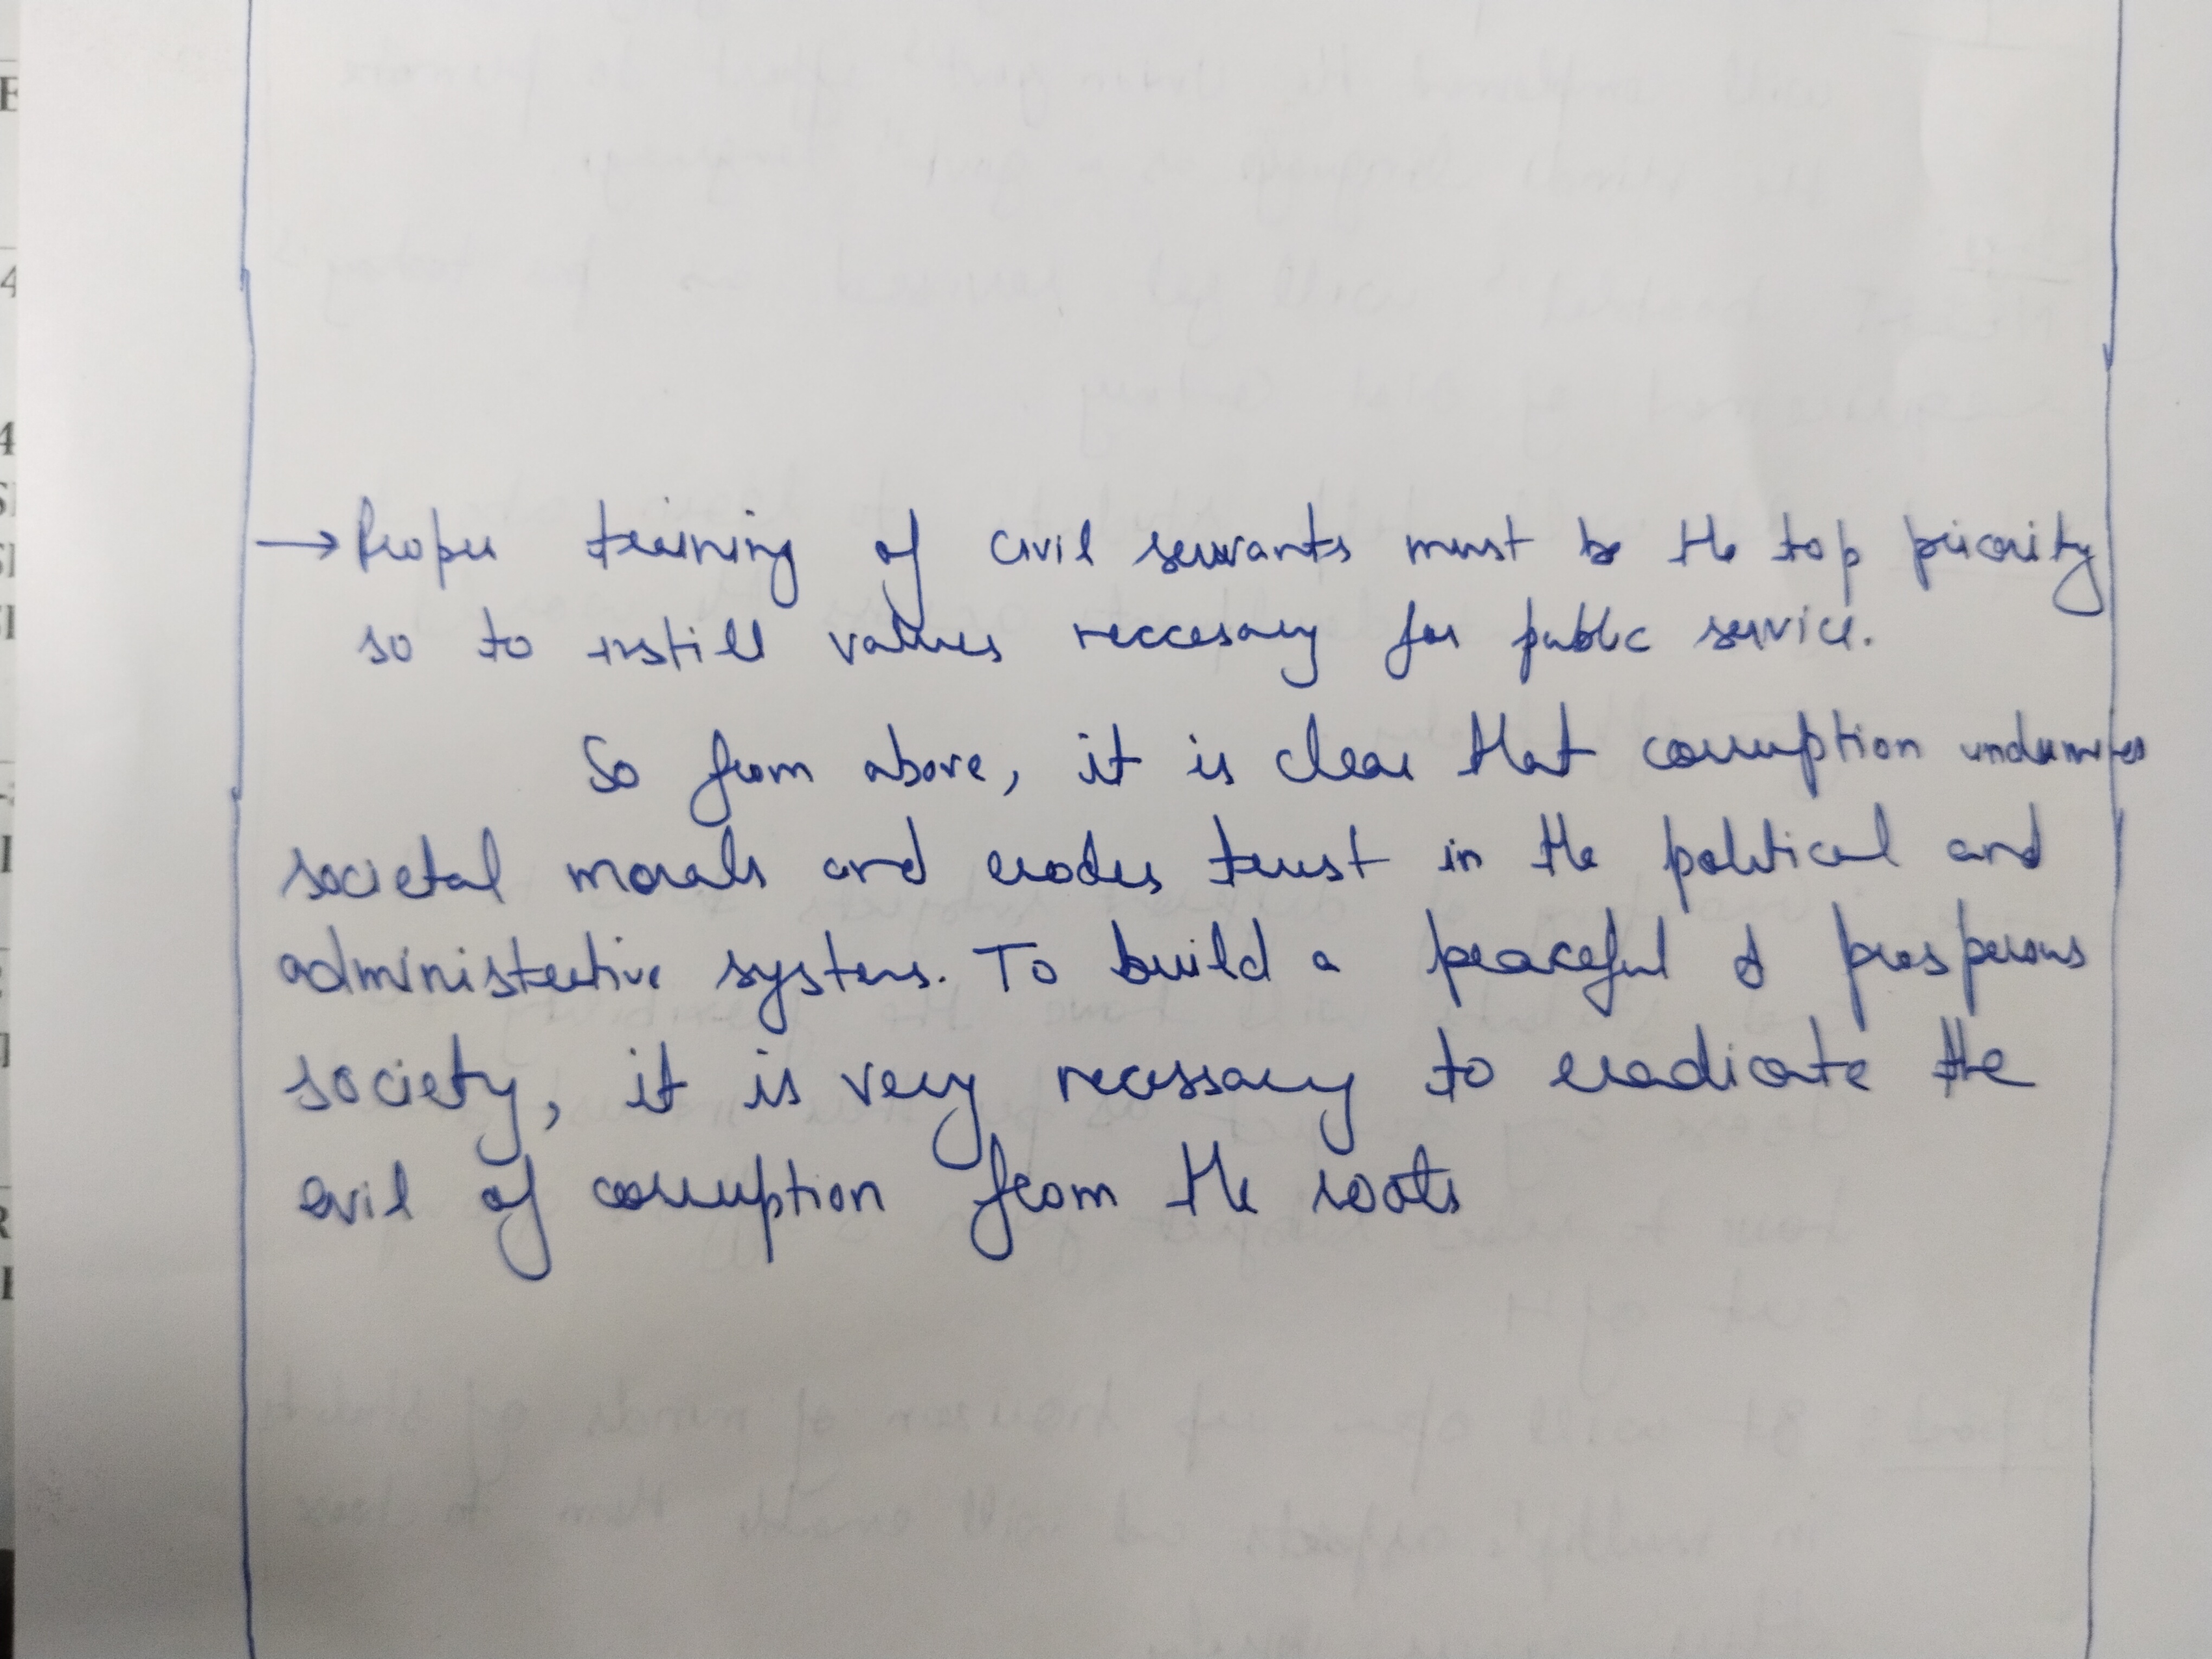 → Proper training of civil servants must be the top priority
so to instill values neccesary for public service.
So from above, it is clear that corruption undermines
societal morals and erodes trust in the political and
administrative systems. To build a peaceful & prosperous
society, it is very necessary to eradicate the
evil of corruption from the roots